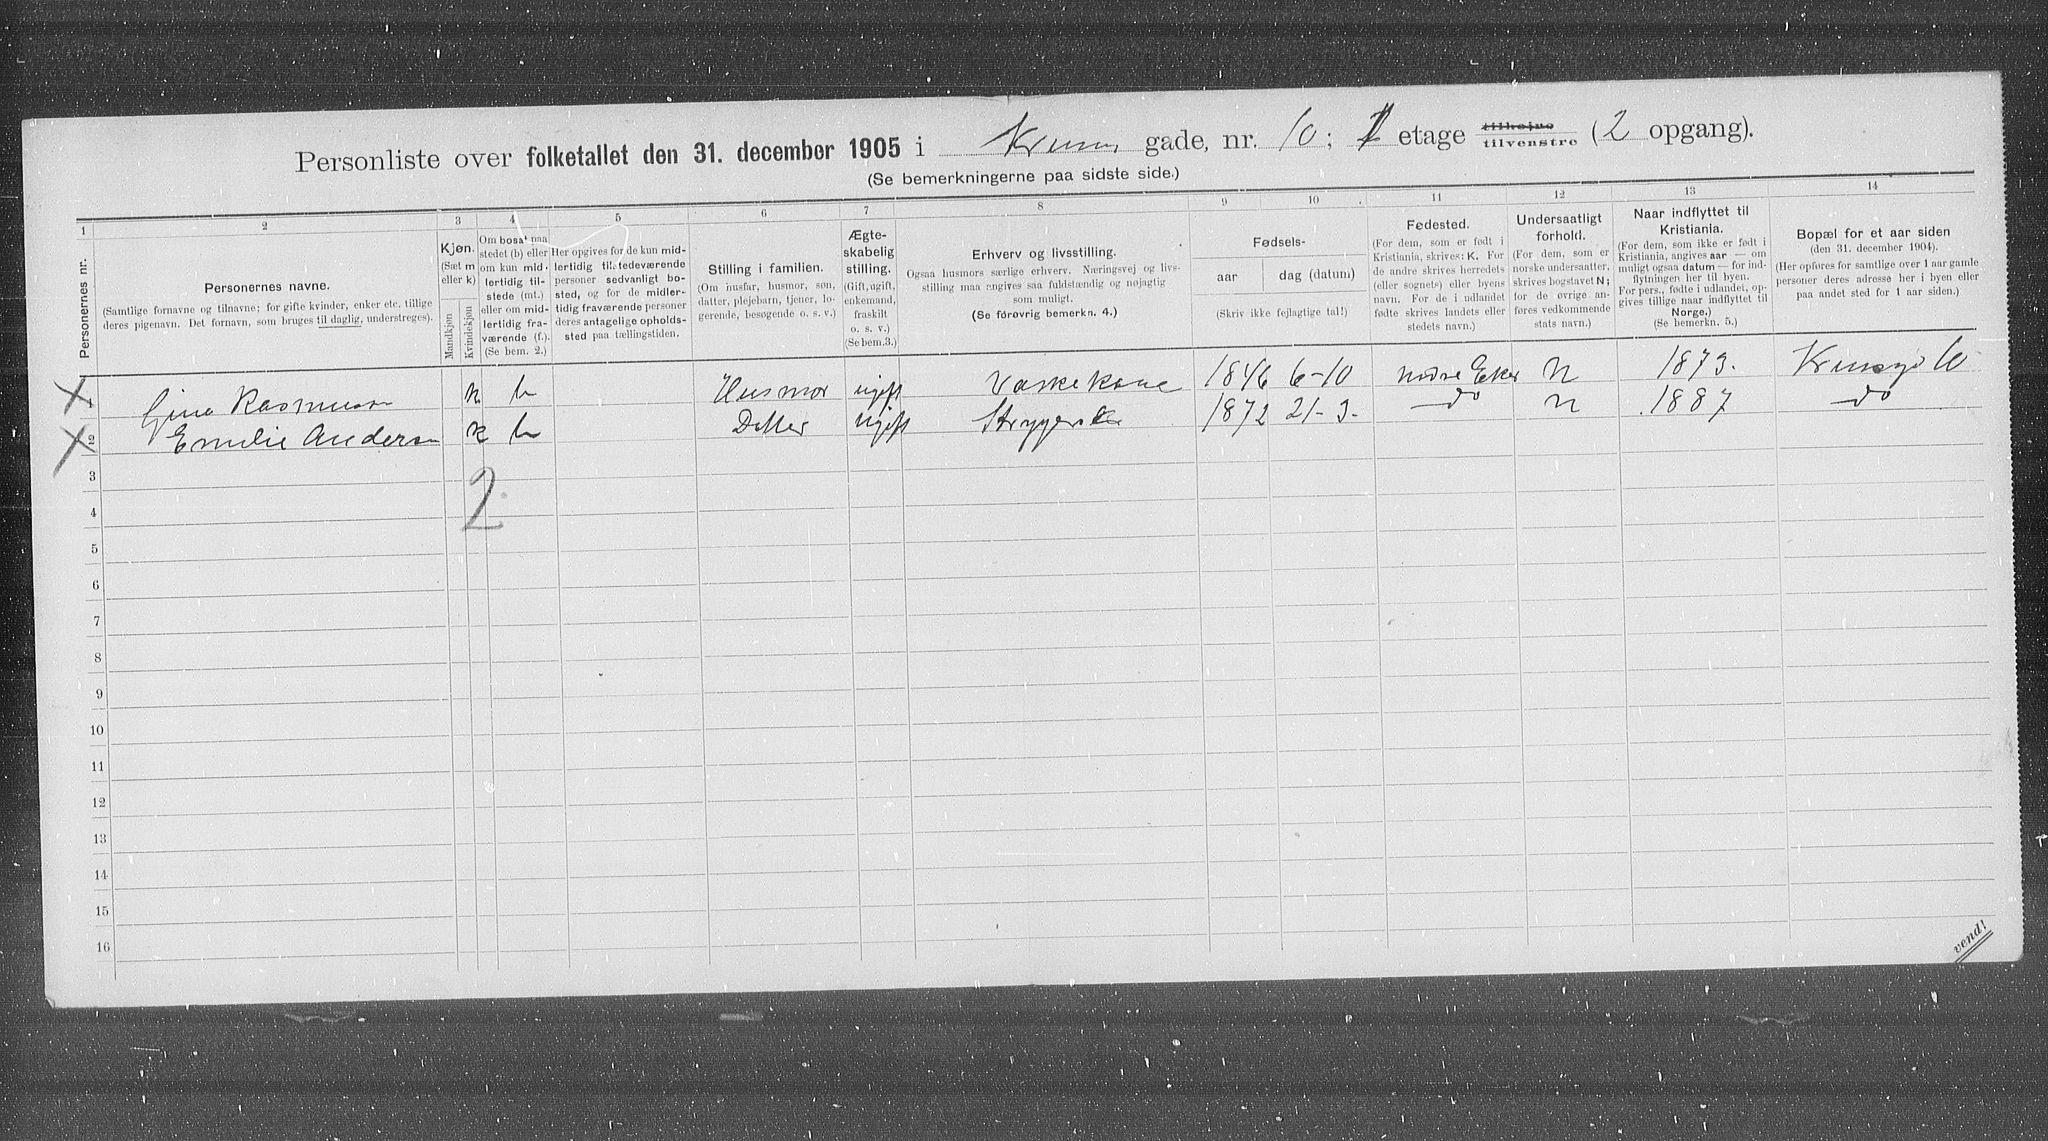 Personliste over folketallet den 31. december 1905 i Kruses gade, nr. 10; 1 etage tilhøjre tilvenstre (2 opgang).
(Se bemerkningerne paa sidste side.)
1 2 3 4 5 6 7 8 9 10 11 12 13 14
Personernes nr.
Personernes navne.
(Samtlige fornavne og tilnavne; for gifte kvinder, enker etc. tillige
deres pigenavn. Det fornavn, som bruges til daglig, understreges).
Kjøn.
(Sæt m
eller k)
Mandkjøn
Kvindekjøn
Om bosat paa
stedet (b) eller
om kun mid-
lertidig til-
stede (mt.)
eller om mid-
lertidig fra-
værende (f.).
(Se bem. 2.)
Her opgives for de kun mid-
lertidig tilstedeværende
personer sedvanligt bo-
sted, og for de midler-
tidig fraværende personer
deres antagelige opholds-
sted paa tællingstiden.
Stilling i familien.
(Om husfar, husmor, søn,
datter, plejebarn, tjener, lo-
gerende, besøgende o. s. v.)
Ægte-
skabelig
stilling.
(Gift, ugift,
enkemand,
fraskilt
o. s. v.)
(Se bem.3.)
Erhverv og livsstilling.
Ogsaa husmors særlige erhverv. Næringsvej og livs-
stilling maa angives saa fuldstændig og nøjagtig
som muligt.
(Se forøvrig bemerkn. 4.)
Fødsels-
aar
dag (datum)
(Skriv ikke fejlagtige tal!)
Fødested.
(For dem, som er født i
Kristiania, skrives: K. For
de andre skrives herredets
(eller sognets) eller byens
navn. For de i udlandet
fødte skrives landets eller
stedets navn.)
Undersaatligt
forhold.
(For dem, som er
norske undersaatter,
skrives bogstavet N;
for de øvrige an-
føres vedkommende
stats navn.)
Naar indflyttet til
Kristiania.
(For dem, som ikke er født i
Kristiania, angives aar — om
muligt ogsaa datum — for ind-
flytningen her til byen.
For pers., fødte i udlandet, op-
gives tillige naar indflyttet til
Norge.)
(Se bemerkn. 5.)
Bopæl for et aar siden
(den 31. december 1904).
(Her opføres for samtlige over 1 aar gamle
personer deres adresse her i byen eller
paa andet sted for 1 aar siden.)
1 Gina Rasmussen k b Husmor ugift Vaskekone 1846 6-10 nedre Eker N 1873. Krusesgd 10
2 Emilie Andersen k b Datter ugift Strygerske 1872 21-3. do N 1887 do
2
3
4
5
6
7
8
9
10
11
12
13
14
15
16
vend!